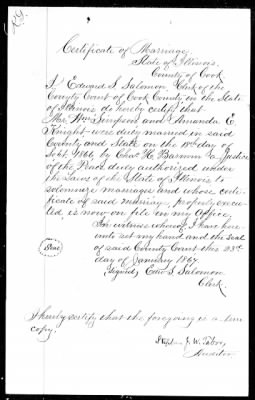 Certificate of Marriage.
State of Illinois.
County of Cook.
I, Edward S. Salomon Clerk of the
County Court of Cook County in the State
of Illinois do hereby certify that
Mr. Wm Simpson and Amanda E
Knight were duly married in said
County and State on the day of
Sept. 1866 by Chas H. a Justice
of the Peace duly authorized under
the Laws of the State of Illinois to
solemnize marriages and whose certi-
ficate of said marriage, properly execu-
ted, is now on file in my Office.
In witness whereof, I have here
unto set my hand and the seal
of said County Court this 23rd
day of January 1867.
Seal
Signed, Edw. S. Salomon
Clerk.
I hereby certify that the foregoing is a true
copy.
Stephen J. W. Tabor,
Auditor.